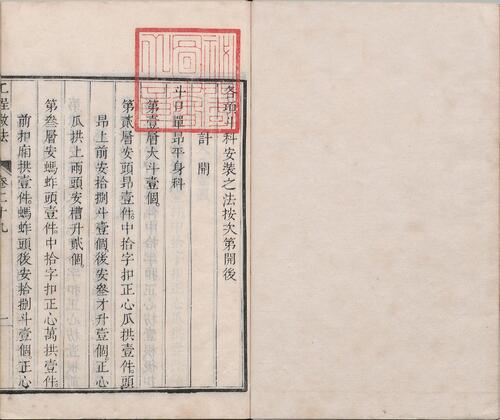 各項斗科安裝之法按次第開後
計開
斗口單昂平身科
第壹層大斗壹個
第貳層安頭昂壹件中拾字扣正心瓜拱壹件頭
昂上前安拾捌斗壹個後安叄才升壹個
瓜拱上兩頭安槽升貳個
第叄層安螞蚱頭壹件中拾字扣正心萬拱壹件
前扣廂拱壹件螞蚱頭後安拾捌斗壹個正心
工程做法 卷二十九 一